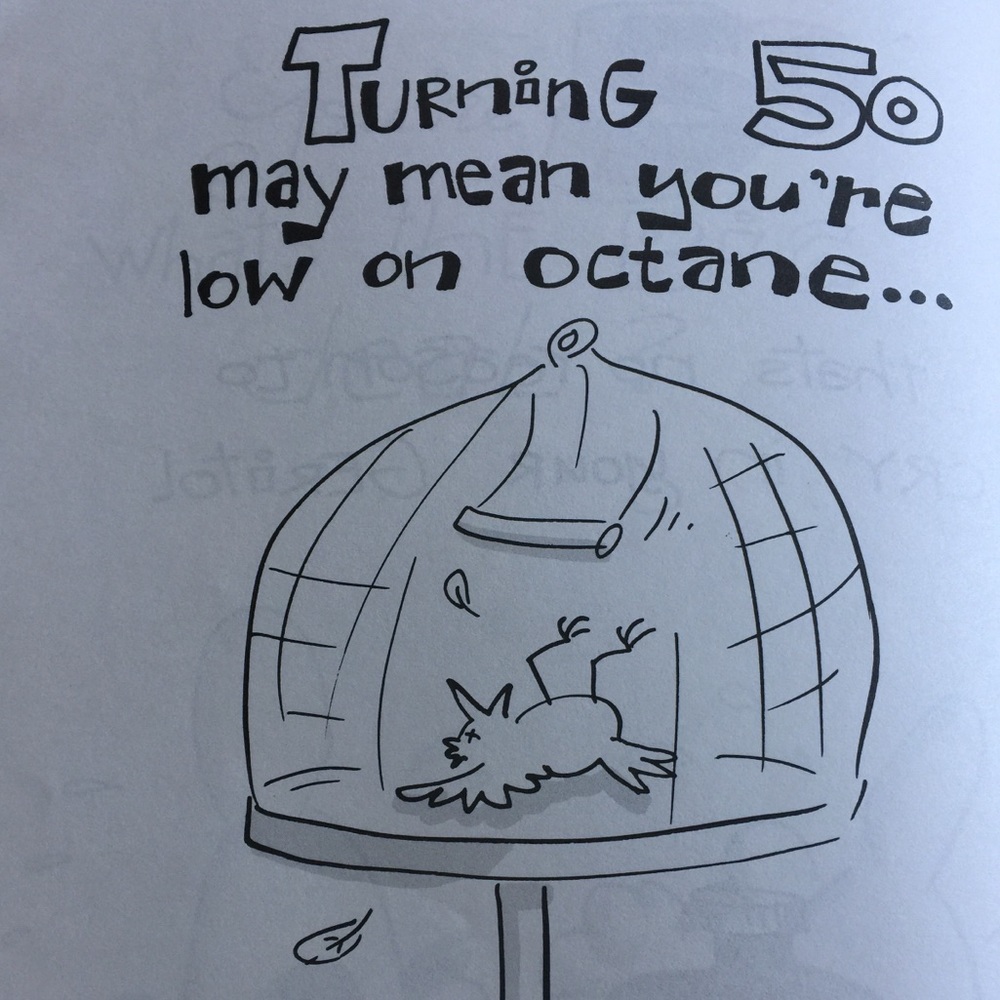 Turning 50
may mean you're
low on octane...